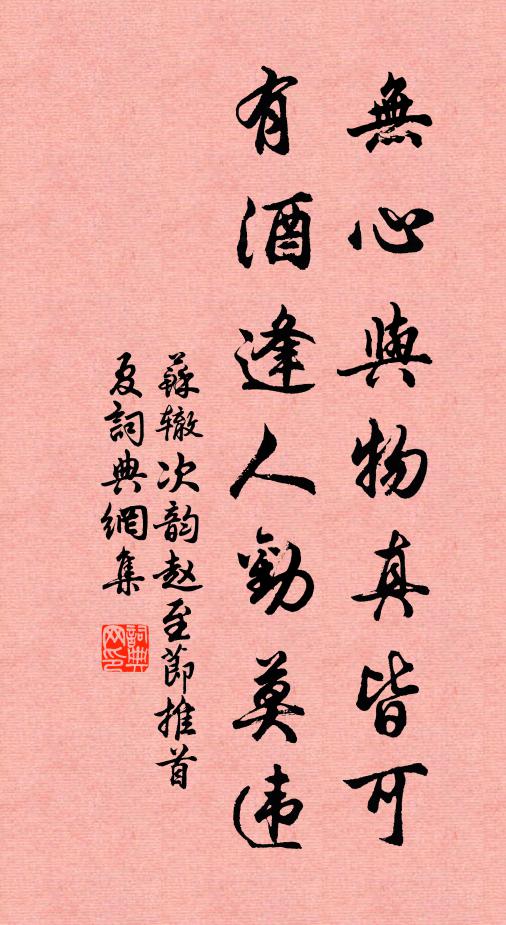 無心與物真皆可
有酒逢人勸莫違
蘇辙次韵赵至節推首
夏詞典網集
詞典网印